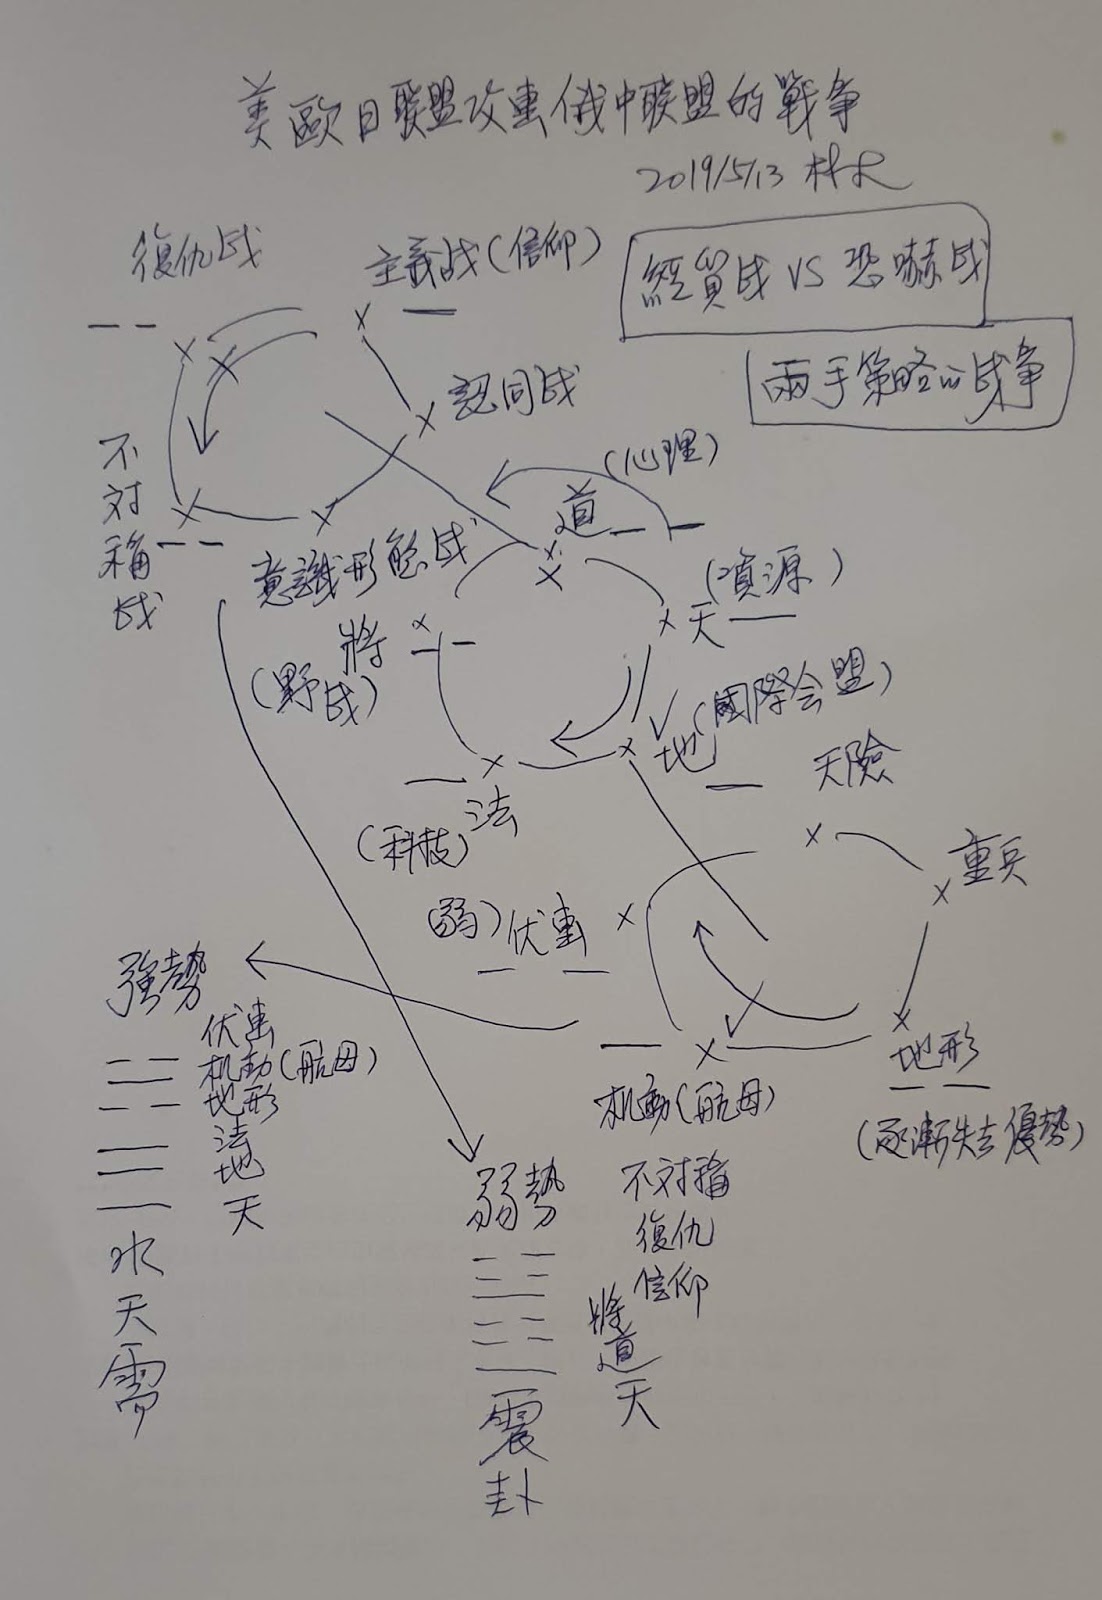 美歐日联盟攻擊俄中联盟的戰争
2019/5/13
復仇战
主義战(信仰)
經貿战 VS 恐嚇战
兩手策略的战争
認同战
不対稱战
意識形態战
(心理)
道
(資源)
天
將
(野战)
(國際会盟)
地
法
(科技)
天險
重兵
(弱)伏擊
地形
(逐漸失去優勢)
机動(航母)
強勢
伏擊
机動(航母)
地形
法
地
天
水
天
需
弱勢
不対稱
復仇
信仰
將
道
天
震
卦